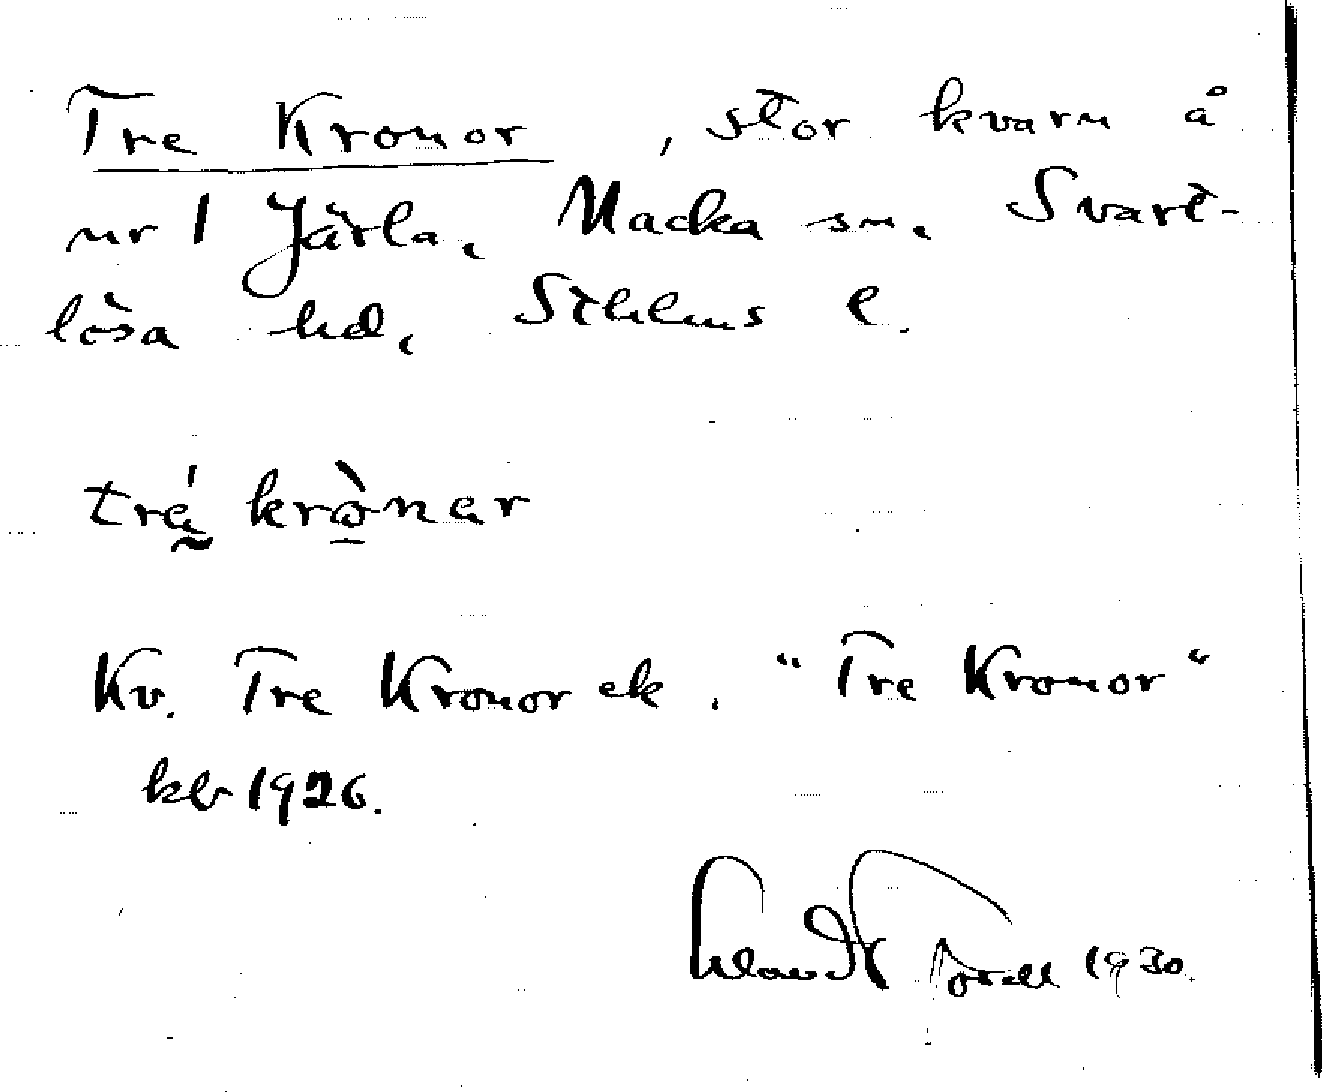 Tre Kronor, stor kvarn å
nr 1 Järla, Nacka sn, Svart-
lösa hd, Sthlms l.
tré krònar
Kv. Tre Kronor ek. "Tre Kronor"
kb 1926.
1930.